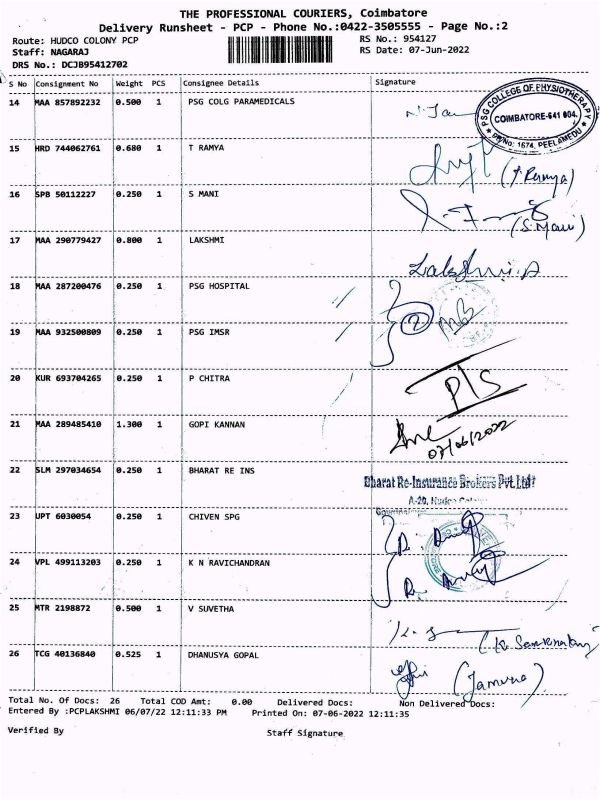 THE PROFESSIONAL COURIERS, Coimbatore
Delivery Runsheet - PCP - Phone No.:0422-3505555 - Page No.:2
Route: HUDCO COLONY PCP RS No.: 954127
Staff: NAGARAJ RS Date: 07-Jun-2022
DRS No.: DCJB95412702
S No Consignment No Weight PCS Consignee Details Signature
14 MAA 857892232 0.500 1 PSG COLG PARAMEDICALS
PSG COLLEGE OF PHYSIOTHERAPY
COIMBATORE-641 004.
1674, PEELAMEDU
15 HRD 744062761 0.680 1 T RAMYA
(T. Ramya)
16 SPB 50112227 0.250 1 S MANI
(S. Mani)
17 MAA 290779427 0.800 1 LAKSHMI Lakshmi.A
18 MAA 287200476 0.250 1 PSG HOSPITAL
2
19 MAA 932500809 0.250 1 PSG IMSR
20 KUR 693704265 0.250 1 P CHITRA P/S
21 MAA 289485410 1.300 1 GOPI KANNAN
07/06/2022
22 SLM 297034654 0.250 1 BHARAT RE INS Bharat Re-Insurance Brokers Pvt.Ltd
A-20,
23 UPT 6030054 0.250 1 CHIVEN SPG
24 VPL 499113203 0.250 1 K N RAVICHANDRAN
25 MTR 2198872 0.500 1 V SUVETHA
26 TCG 40136840 0.525 1 DHANUSYA GOPAL (Jamuna)
Total No. Of Docs: 26 Total COD Amt: 0.00 Delivered Docs: Non Delivered Docs:
Entered By :PCPLAKSHMI 06/07/22 12:11:33 PM Printed On: 07-06-2022 12:11:35
Verified By Staff Signature